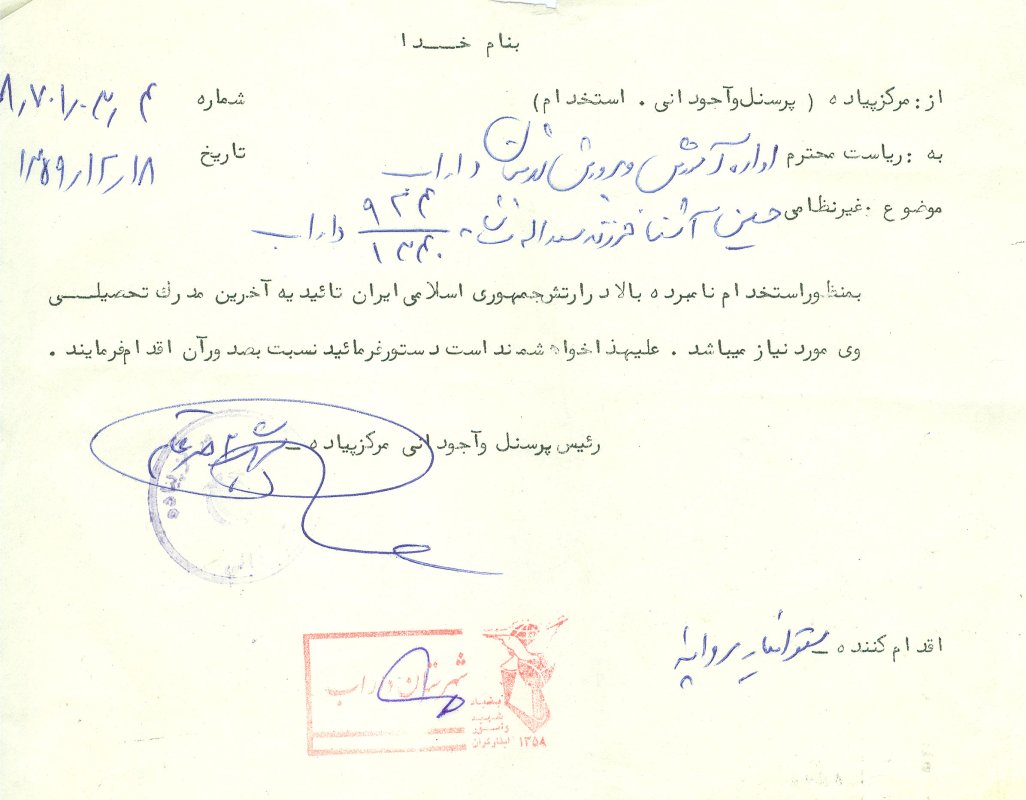 بنام خدا
از: مرکز پیاده ( پرسنل وآجودانی . استخدام)
شماره
به : ریاست محترم اداره آموزش و پرورش شهرستان داراب
تاریخ ۱۳۶۹/۱۲/۱۸
موضوع .غیرنظامی حسین آشنا فرزند سداله ش ش ۹۴۴ / ۱۳۴۰ داراب
بمنظوراستخدام نامبرده بالا در ارتش جمهوری اسلامی ایران تائیدیه آخرین مدرك تحصیلی
وی مورد نیاز میباشد . علیهذا خواهشمند است دستورفرمائید نسبت بصدورآن اقدام فرمایند .
رئیس پرسنل وآجودانی مرکز پیاده _
اقدام کننده _
شهرستان داراب
بنیاد
شهید
وامور
ایثارگران
۱۳۵۸